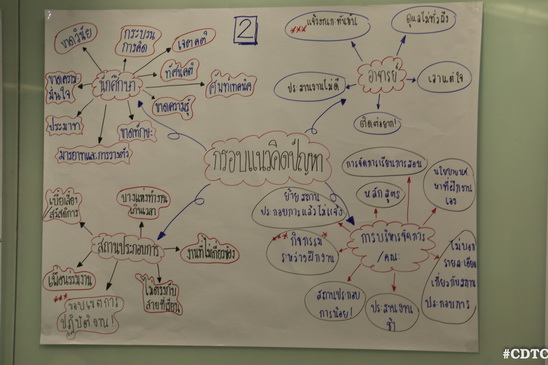 2
ขาดวินัย
กระบวน
การคิด
เจตคติ
ทัศนคติ
ศัพท์เทคนิค
นักศึกษา
ขาดความ
มั่นใจ
ขาดความรู้
ประมาท
ขาดทักษะ
มารยาทและการวางตัว
***
ดูแลไม่ทั่วถึง
อาจารย์
เอาแต่ใจ
ประสานงานไม่ดี
ติดต่อยาก!
กรอบแนวคิดปัญหา
เบี้ยเลี้ยง
สวัสดิการ
บางแห่งทำงาน
เกินเวลา
สถานประกอบการ
งานที่ไม่เกี่ยวข้อง
เพื่อนร่วมงาน
ไม่ตรงกับ
สายที่เรียน
***
ขอบเขตการ
ปฏิบัติงาน!
การจัดการเรียนการสอน
หลักสูตร
ย้ายสถาน
ประกอบการแล้วไม่แจ้ง
*** กิจกรรม
ระหว่างฝึกงาน
การบริหารจัดการ
/คณะ
สถานประกอบ
การน้อย!
ประสานงาน
ช้า
ไม่บอก
รายละเอียด
เกี่ยวกับสถาน
ประกอบการ
#CDTC